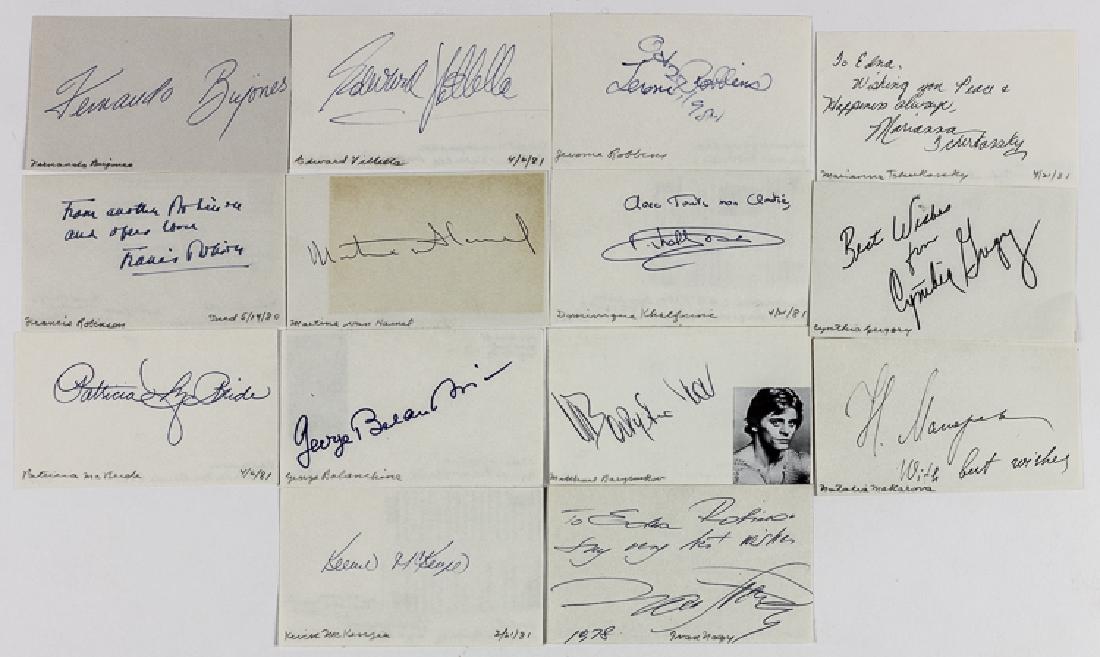 Fernando Bujones
Fernando Bujones
Edward Villella
Edward Villella 4/2/81
Oct 29, 1981
Jerome Robbins
Jerome Robbins
To Edna,
Wishing you Peace &
Happiness always,
Marianna
Tcherkassky
Marianna Tcherkassky 4/21/81
From another Robinson
and opera lover
Francis Robinson
Francis Robinson Died 5/19/80
Martine van Hamel
Martine van Hamel
Khalfouni
Dominique Khalfouni 4/21/81
Best Wishes
from
Cynthia Gregory
Cynthia Gregory
Patricia McBride
Patricia McBride 4/2/81
George Balanchine
George Balanchine
M Baryshnikov
Mikhail Baryshnikov
N. Makarova
With best wishes
Natalia Makarova
Kevin McKenzie
Kevin McKenzie 2/21/81
To Edna Robinson
very best wishes
Ivan Nagy
1978. Ivan Nagy